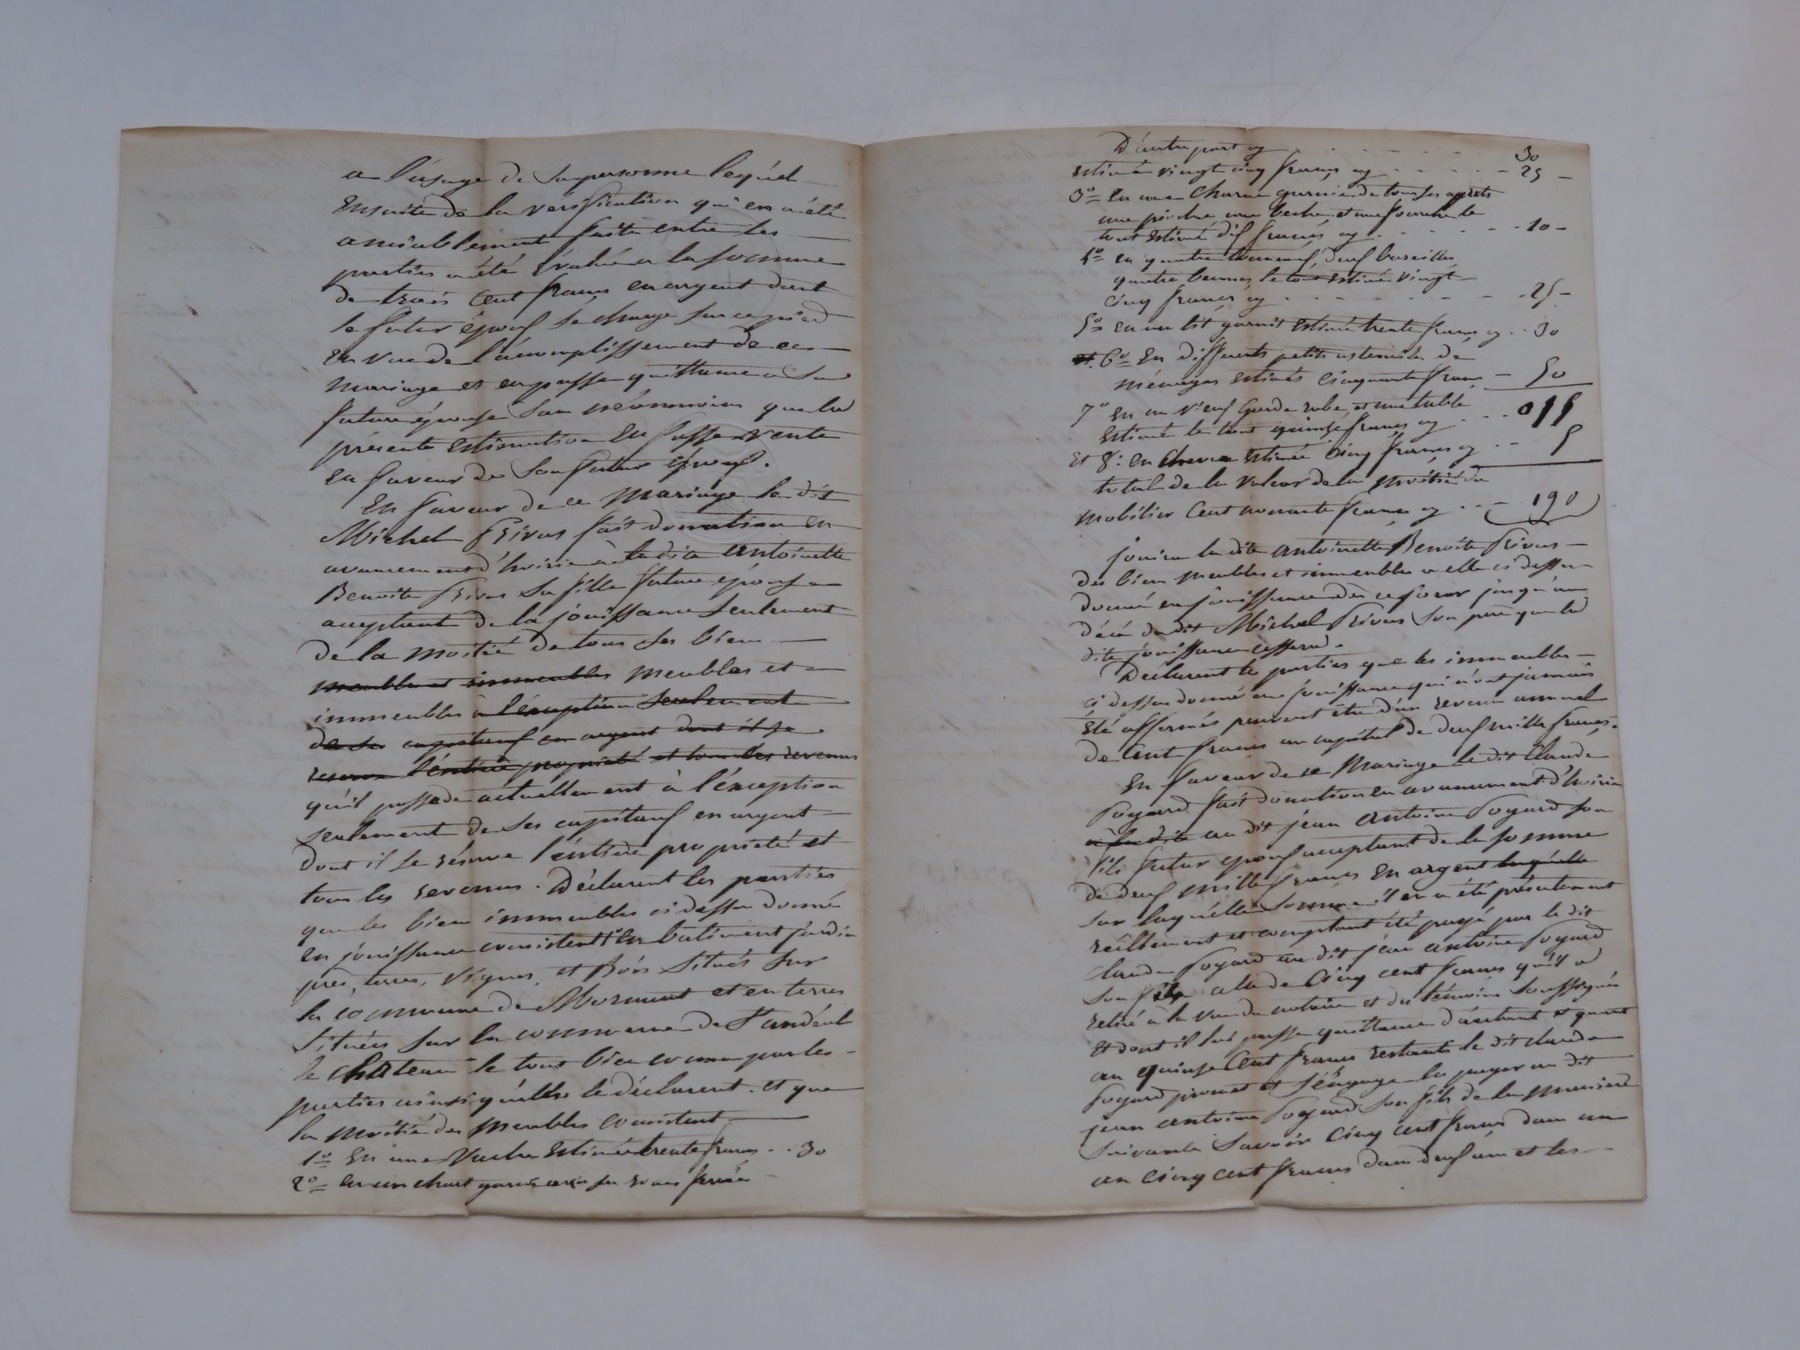 a l'usage de sa personne lequel
Ensuite de la verification qui en a été
amiablement faite entre les
parties a été évalué a la somme
de trois cent francs en argent dont
le futur époux se charge sur ce pied
en vue de l'accomplissement de ce
mariage et en passe quittance a sa
future épouse sans néanmoins que la
présente estimation en fasse vente
en faveur de son futur époux.
En faveur de ce mariage le dit
Michel Privas fait donation en
avancement d'hoirie à la dite antoinette
Benoite Privas sa fille future épouse
acceptant de la jouissance seulement
de la moitié de tous ses biens
meubles et immeubles meubles et
immeubles à l'exception seulement
de ses capitaux en argent dont il se
reserve l'entière propriété et tous les revenus
qu'il possede actuellement à l'exception
seulement de ses capitaux en argent
dont il se réserve l'entière propriété et
tous les revenus. Déclarent les parties
que les biens immeubles ci dessus donnés
en jouissance consistent en batiment jardin
près, terres, vignes, et Bois situés sur
la commune de Mornant et en terres
situées sur la commune de St andéol
le chateau le tout bien connu par les
parties ainsi qu'elles le déclarent. et que
la moitié des meubles consistent
1o En une Vache Estimée trente francs .. 30
2o En un chart garni avec ses roues ferrées
D'autre part cy 30
estimé vingt cinq francs cy 25
3o En une charue garnie de tous ses agrets
une pioche une beche et une fourche le
tout estimé dix francs cy 10
4o en quatre tonneaux, deux bareilles
quatre bennes le tout estimé vingt
cinq francs cy 25
5o en un lit garnit estimé trente francs cy .. 30
et 6o En differents petits ustensiles de
ménages estimés cinquante francs 50
7o en un vieux garde robe, et une table
estimé le tout quinze francs cy 015
Et 8o en chevre estimée cinq francs cy 5
total de la valeur de la moitié du
mobilier cent nonante francs cy 190
jouira la dite antoinette Benoite Privas
des biens meubles et immeubles a elle ci dessus
donné en jouissance dès ce jour jusqu'au
décès du dit Michel Privas son père que la
dite jouissance cessera.
Déclarent les parties que les immeubles
ci dessus donné en jouissance qui n'ont jamais
été affermés peuvent être d'un revenu annuel
de cent francs au capital de deux mille francs.
En faveur de ce Mariage le dit Claude
Poyard fait donation en avancement d'hoirie
à la dite au dit jean antoine Poyard son
fils futur époux acceptant de la somme
de deux mille francs en argent laquelle
sur laquelle somme il en a été présentement
réellement et comptant été payé par le dit
claude Poyard au dit jean antoine Poyard
son fils celle de cinq cent francs qu'il a
retiré a la vue du notaire et des témoins soussignés
Et dont il lui passe quittance d'autant et quant
au quinze cent francs restants le dit claude
Poyard promet et s'engage les payer au dit
jean antoine Poyard son fils de la maniere
suivante savoir cinq cent francs dans un
an cinq cent francs dans deux ans et les